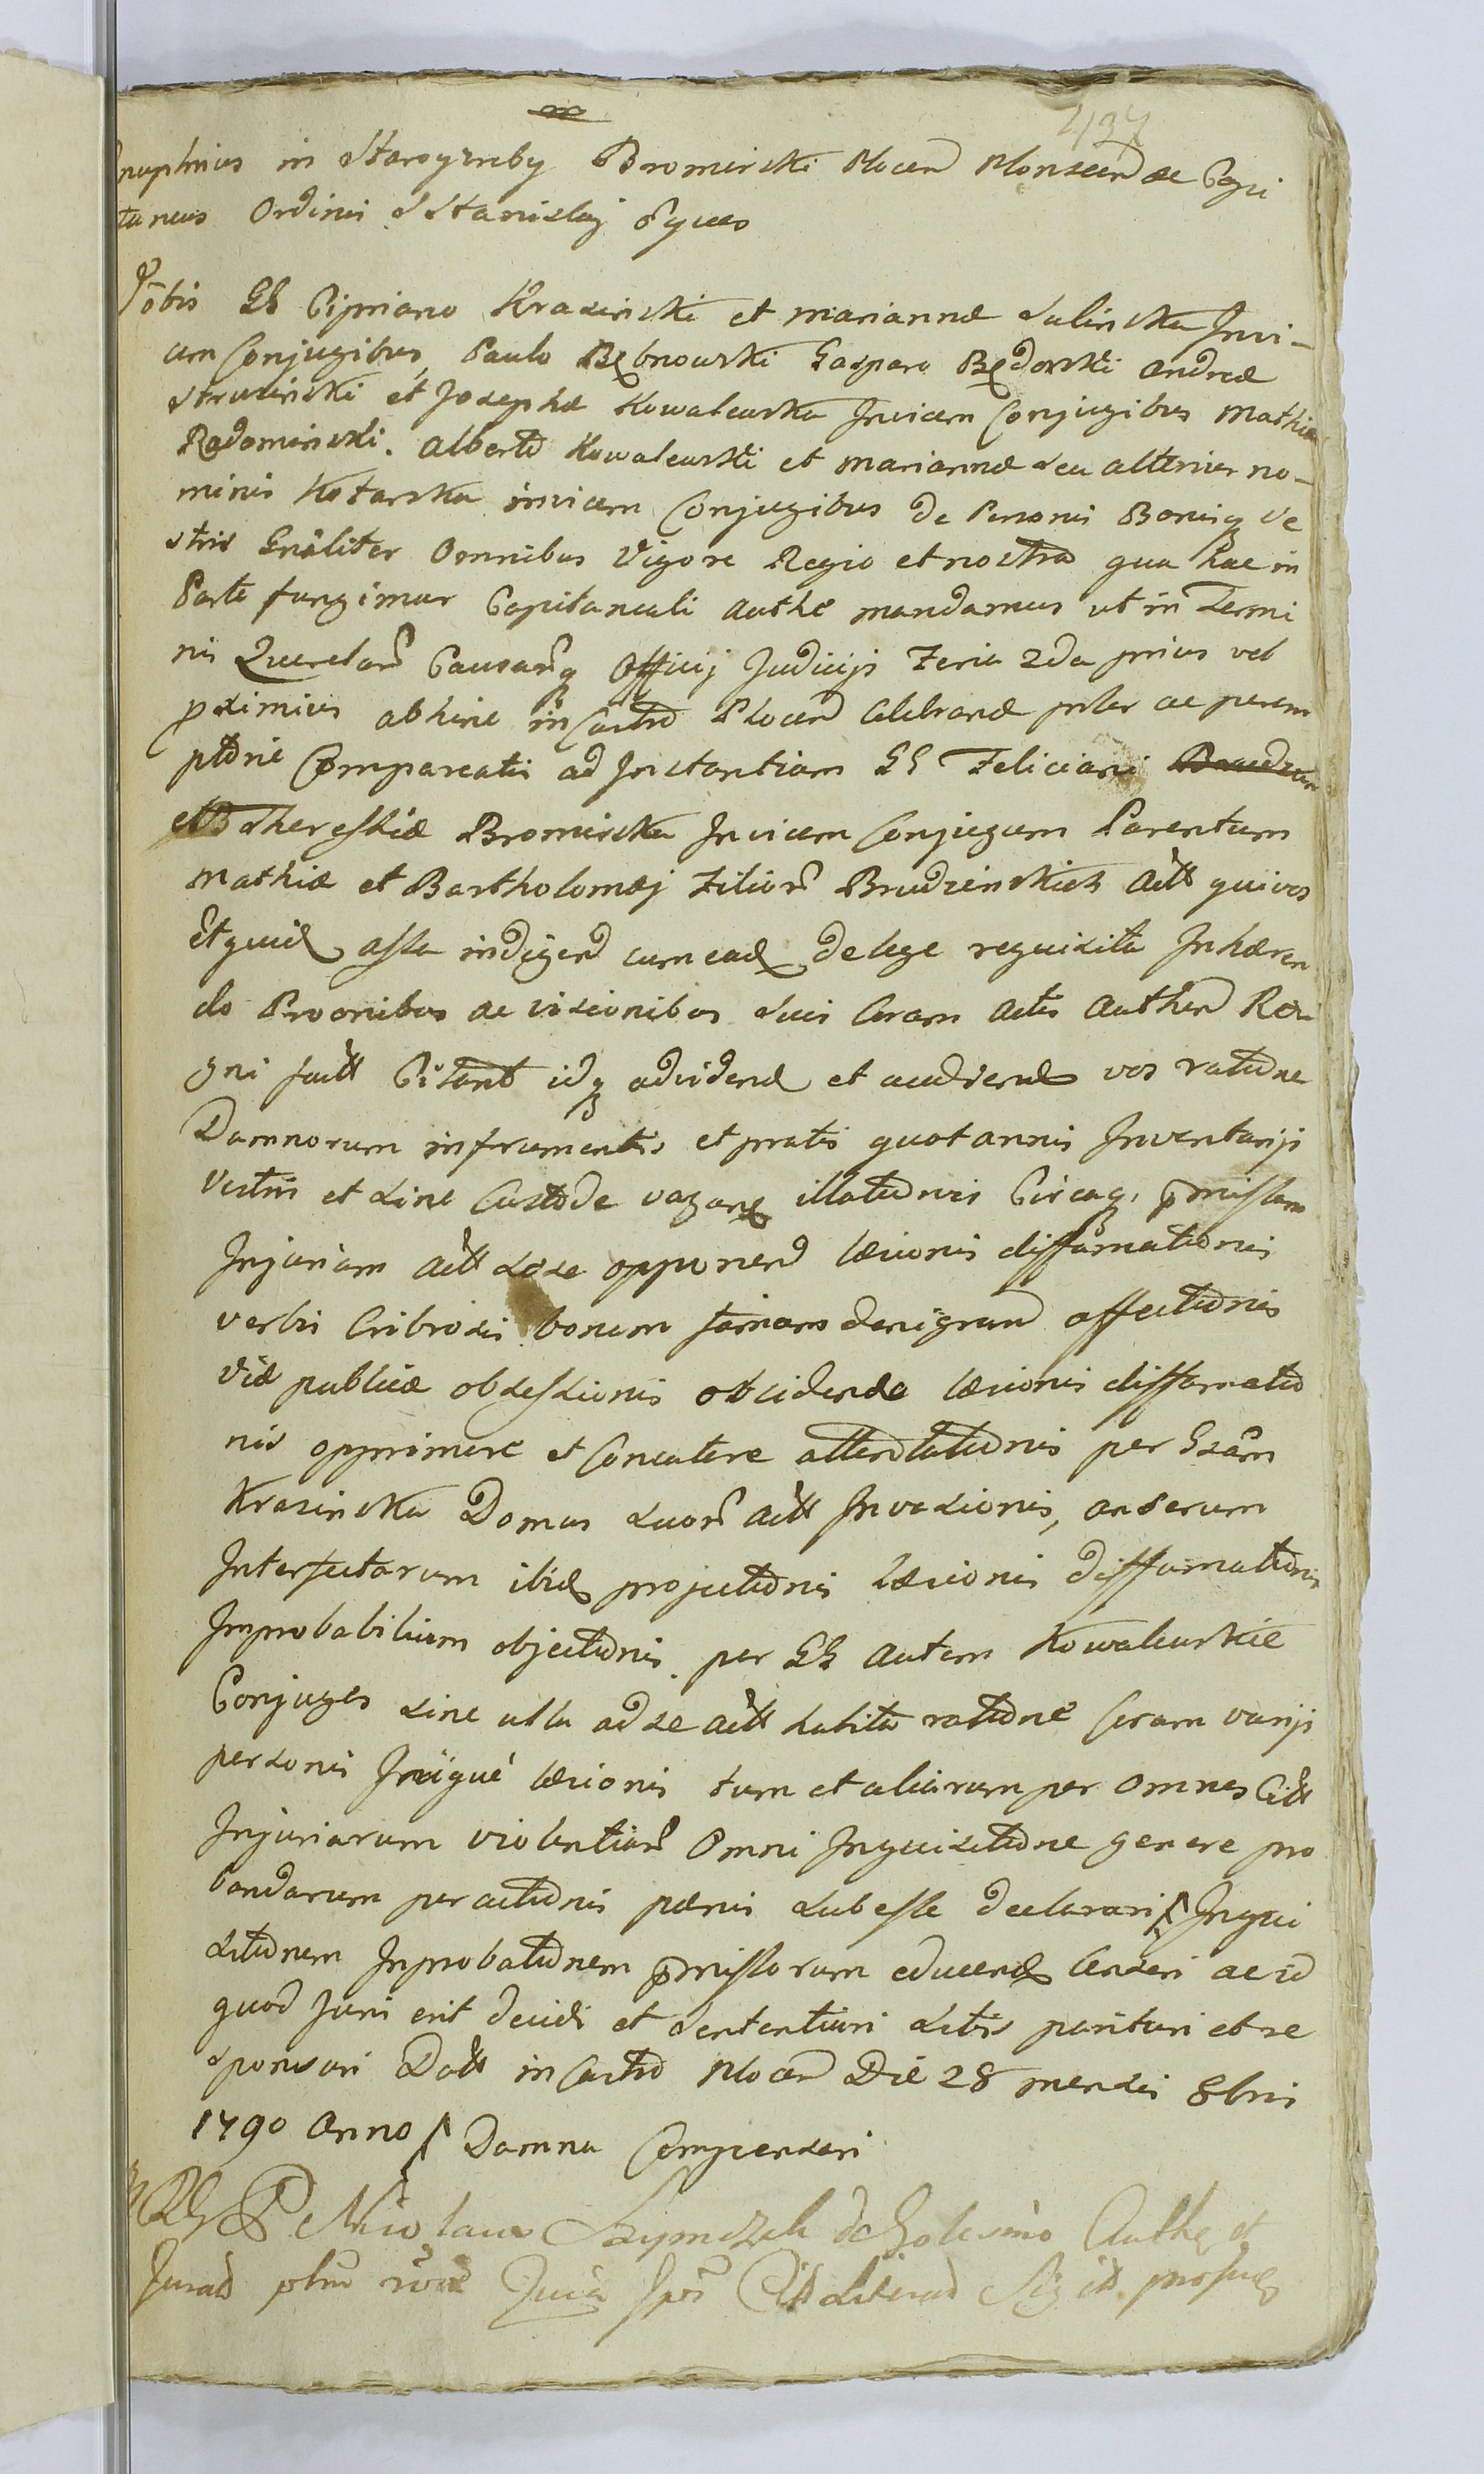 437
nuphrius in Starogreby Bromirski Plocen Plonscen ac Capi
taneus Ordinis S Stanislaj Eques
Vobis GG Cipriano Krasinski et Mariannæ Sulinska Invi-
cem Conjugibus, Paulo Rębnowski Gaspara Będorski Andreæ
Struzinski et Josephæ Kowalewska Invicem Conjugibus Mathiæ
Radominski. Alberto Kowalewski et Mariannæ seu alterius no-
minis Kotarska invicem Conjugibus de Personis Bonisq Ve
stris Gnaliter Omnibus Vigore Regio et nostra qua hac in
Parte fungimur Capitaneali Authe mandamus ut in Termi
nis Querelarũ Causarũq Officij Judicijs Feria 2da prius vel
pximius abhinc in Castro Plocen Celebrand pnter ac perem
ptorie Compareatis ad Instantiam GG Feliciani
et Theressiæ Bromirska Invicem Conjugum Parentum
Mathiæ et Bartholomæj Filiorũ Brudzinskich Actt qui vos
Et quid assa indigend cum ead de lege requisita Inhæren
do Proōnibus ac visionibus suis Coram Actis Authen Re
gni factt Citant idq ad videnđ et audienđ vos ratione
Damnorum in frumentis et pratis quotannis Inventarijs
Vestris et sine Custode vaganđ illationis Circaq. pmissam
Injuriam Actt sese opponenđ læsionis diffamationis
verbis Cribrosis bonam famam denigranđ affectionis
Viæ publicæ obsessionis obsidendæ læsionis diffamatio
nis opprimere et Concutere attentationis per Gsam
Krasinska Domus suorũ Actt Invasionis, anserum
Interfectarum ibid projectionis læsionis diffamationis
Improbabilium objectionis. per GG autem Kowalewskie
Conjuges sine ulla ad se Actt habita ratione Coram varijs
personis læsionis tum et aliarum per Omnes Citt
Injuriarum violentiarũ Omni Inquisitione genere pro
bandarum peractionis pænis subesse declarari Inqui
sitionem Inprobationem pmissorum educenđ Censeri ac id
quod Juris erit decidi et sententiari sitis parituri et re
sponsuri Datt in Castro Plocen Die 28 mensis 8bris
1790 Anno Damna Compensari
Nicolaus Szymczak de Golesino Authe et
Jurađ